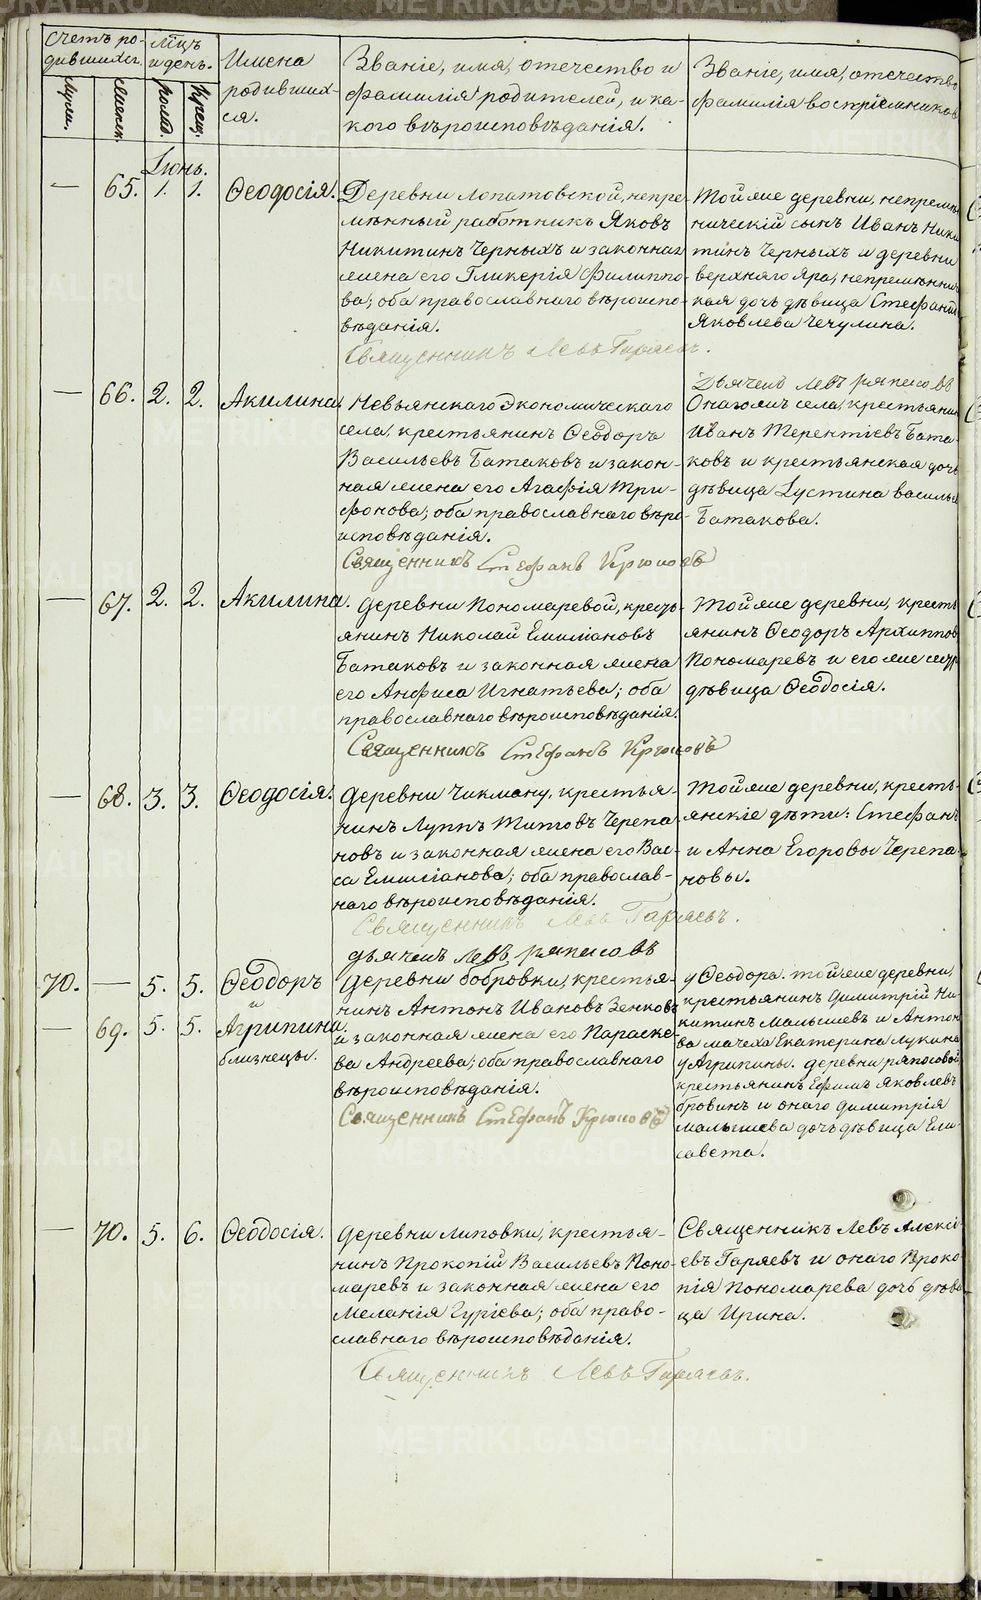 Счетъ ро-
дившихся.
Мѣцъ
и день.
Имена
родивших-
ся.
Званіе, имя, отечество и
фамилія родителей, и ка-
кого вѣроисповѣданія.
Званіе, имя, отечество
фамилія воспріемниковъ
муж.
женск.
рожд.
крещ.
Іюнь.
— 65. 1. 1. Ѳеодосія.
Деревни Лопатовской, непре-
мѣнный работникъ Яковъ
Никитинъ Черныхъ и законная
жена его Гликерія Филиппо-
ва; оба православнаго вѣроиспо-
вѣданія.
Священникъ Левъ Гаряевъ.
Той же деревни, непремѣн-
ническій сынъ Иванъ Ники-
тинъ Черныхъ и деревни
верхняго Яра, непремѣнни-
кая дочь дѣвица Стефанид
Яковлева Чечулина.
Дьячекъ Левъ Ряпасовъ
— 66. 2. 2. Акилина
Невьянскаго Экономическаго
села, крестьянинъ Ѳеодоръ
Васильевъ Батаковъ и закон-
ная жена его Агафія Три-
фонова; оба православнаго вѣро-
исповѣданія.
Священникъ Стефанъ Крюковъ
Онагожъ села, крестьянин
Иванъ Терентіевъ Бата-
ковъ и крестьянская дочь
дѣвица Іустина Василье
Батакова.
— 67. 2. 2. Акилина.
Деревни Пономаревой, кресть-
янинъ Николай Емиліановъ
Батаковъ и законная жена
его Анфиса Игнатьева; оба
православнаго вѣроисповѣданія.
Священникъ Стефанъ Крюковъ
Той же деревни, кресть-
янинъ Ѳеодоръ Архипповъ
Пономаревъ и его же сестр
дѣвица Ѳеодосія.
— 68. 3. 3. Ѳеодосія.
Деревни Чикману, крестья-
нинъ Луппъ Титовъ Черепа-
новъ и законная жена его Вас-
са Емиліанова; оба православ-
наго вѣроисповѣданія.
Священникъ Левъ Гаряевъ.
дьячекъ Левъ Ряпасовъ
Той же деревни, кресть-
янскіе дѣти: Стефанъ
и Анна Егоровы Черепа-
новы.
70. — 5. 5. Ѳеодоръ
и
— 69. 5. 5. Агрипина.
близнецы.
Деревни Бобровки, крестья-
нинъ Антонъ Ивановъ Зенковъ
и законная жена его Параске-
ва Андреева; оба православнаго
вѣроисповѣданія.
Священникъ Стефанъ Крюковъ
у Ѳеодора. той же деревни,
крестьянинъ Димитрій Ни-
китинъ Малышевъ и Антон
ва мачеха Екатерина Лукина
у Агрипины. деревни Ряпосовой
крестьянинъ Ефимъ Яковлевъ
бровинъ и онаго Димитрія
Малышева дочь дѣвица Ели-
савета.
— 70. 5. 6. Ѳеодосія.
Деревни Липовки, крестья-
нинъ Прокопій Васильевъ Поно-
маревъ и законная жена его
Меланія Гуріева; оба право-
славнаго вѣроисповѣданія.
Священникъ Левъ Гаряевъ.
Священникъ Левъ Алексі-
евъ Гаряевъ и онаго Проко-
пія Пономарева дочь дѣви-
ца Ирина.
METRIKI.GASO-URAL.RU